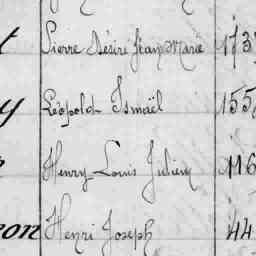 t Pierre Désiré Jean Marie 173
y Léopold Ismaël 155
Henry Louis Julien 116
eon Henri Joseph 44